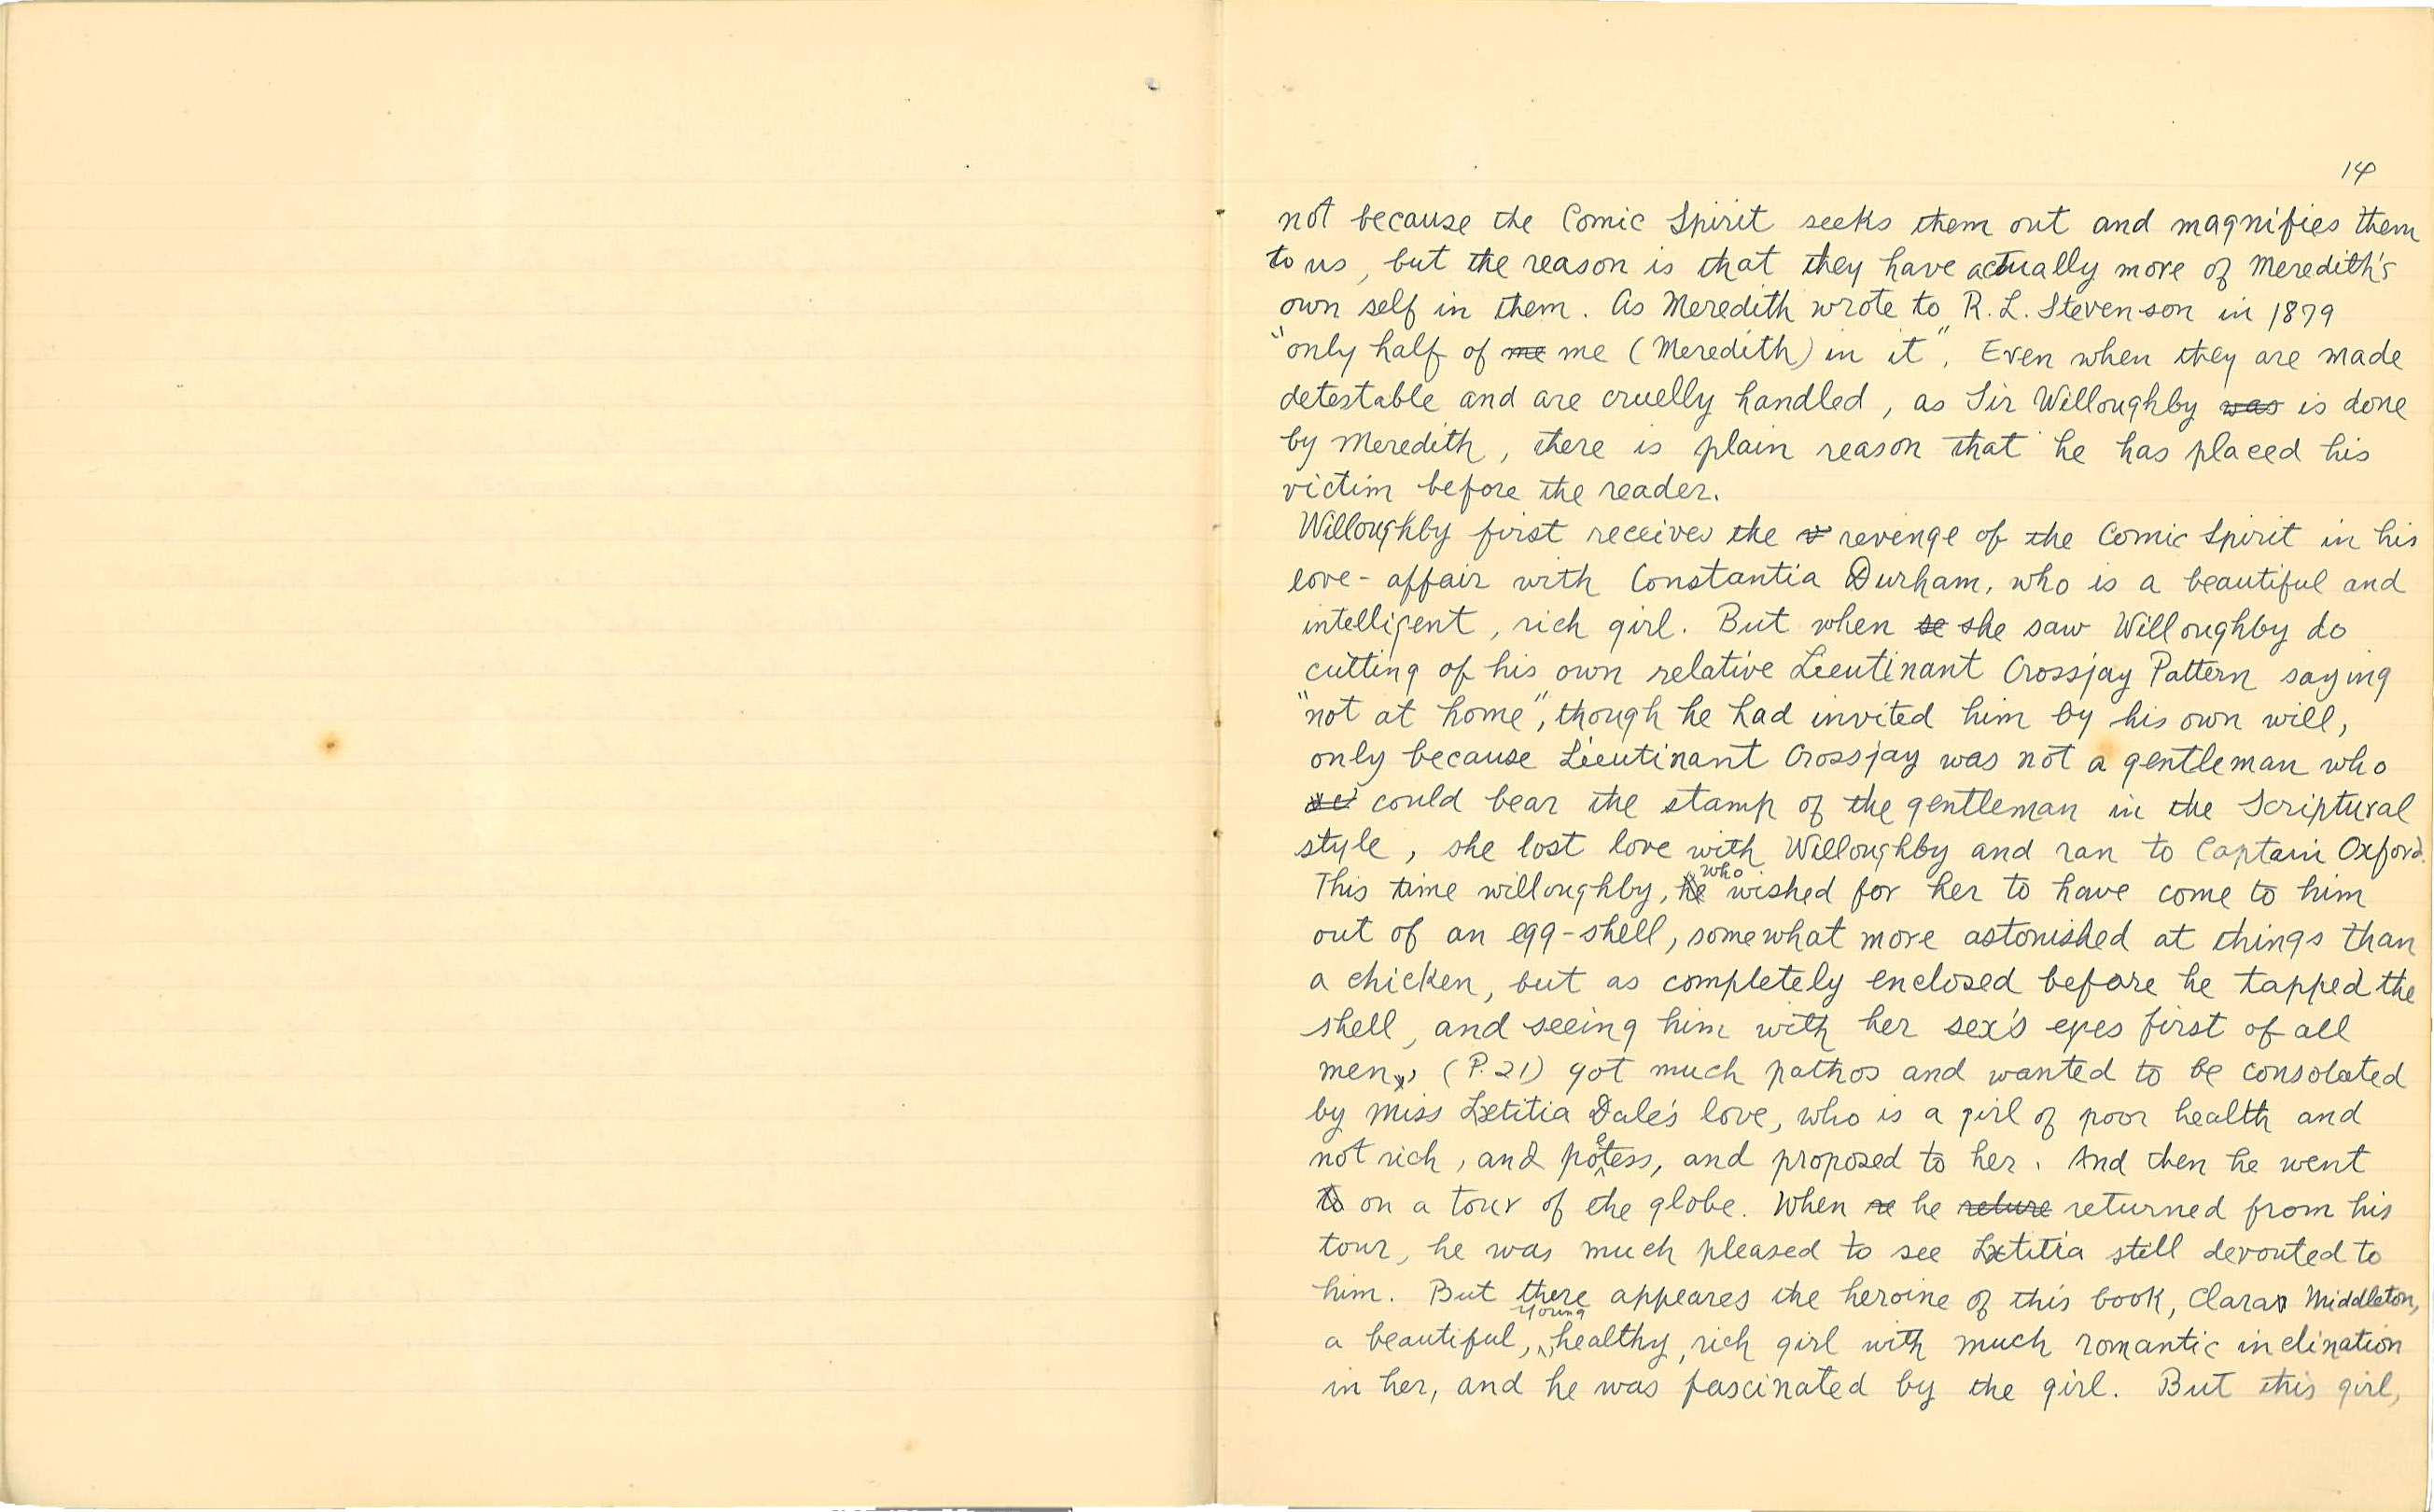 14
not because the Comic Spirit seeks them out and magnifies them
to us, but the reason is that they have actually more of Meredith's
own self in them. As Meredith wrote to R. L. Stevenson in 1879
"only half of me me (Meredith) in it". Even when they are made
detestable and are cruelly handled, as Sir Willoughby was is done
by Meredith, there is plain reason that he has placed his
victim before the reader.
Willoughby first receives the revenge of the Comic Spirit in his
love-affair with Constantia Durham, who is a beautiful and
intelligent, rich girl. But when se she saw Willoughby do
cutting of his own relative Lieutinant Crossjay Pattern saying
"not at home", though he had invited him by his own will,
only because Lieutinant Crossjay was not a gentleman who
could bear the stamp of the gentleman in the Scriptural
style, she lost love with Willoughby and ran to Captain Oxford.
This time willoughby, he who wished for her to have come to him
out of an egg-shell, somewhat more astonished at things than
a chicken, but as completely enclosed before he tapped the
shell, and seeing him with her sex's eyes first of all
men, (P. 21) got much pathos and wanted to be consolated
by Miss Lætitia Dale's love, who is a girl of poor health and
not rich, and poetess, and proposed to her. And then he went
to on a tour of the globe. When re he reture returned from his
tour, he was much pleased to see Lætitia still devouted to
him. But there appeares the heroine of this book, Clara Middleton,
a beautiful, young, healthy, rich girl with much romantic inclination
in her, and he was fascinated by the girl. But this girl,